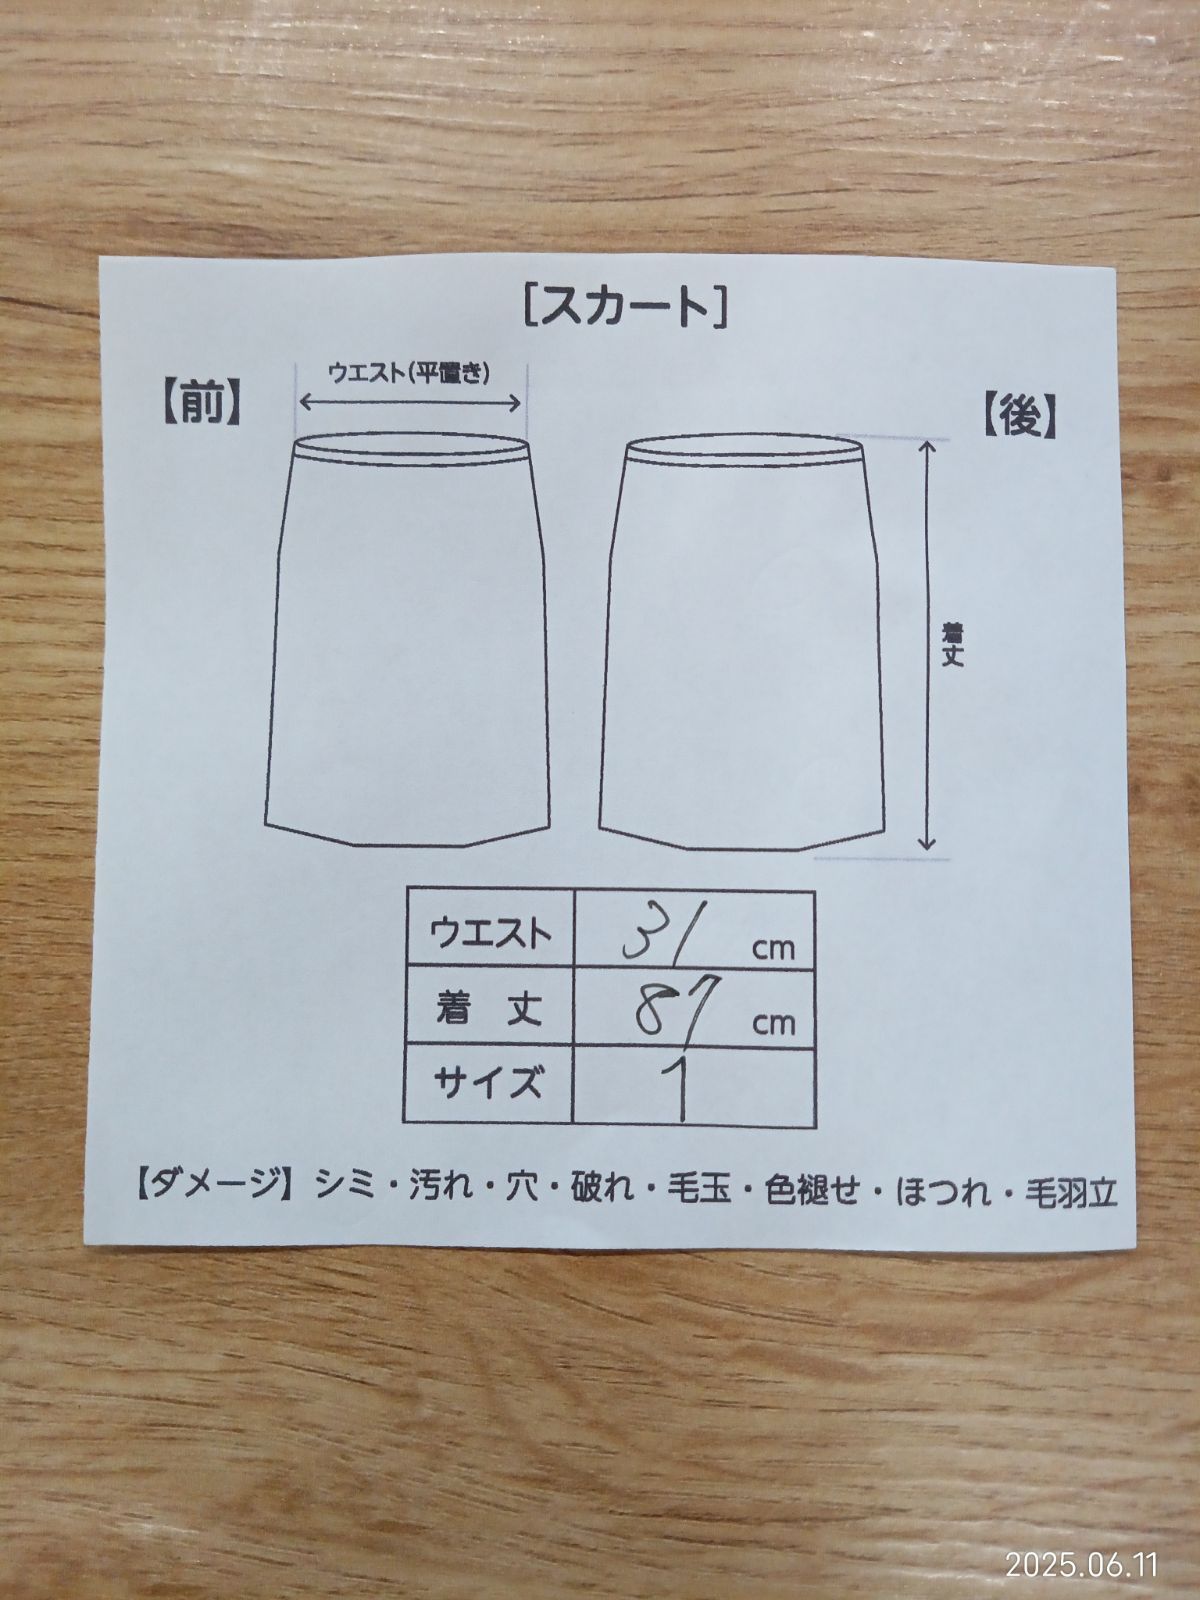 [スカート]
ウエスト(平置き)
【前】
【後】
着丈
ウエスト 31 cm
着 丈 87 cm
サイズ 1
【ダメージ】シミ・汚れ・穴・破れ・毛玉・色褪せ・ほつれ・毛羽立
2025.06.11